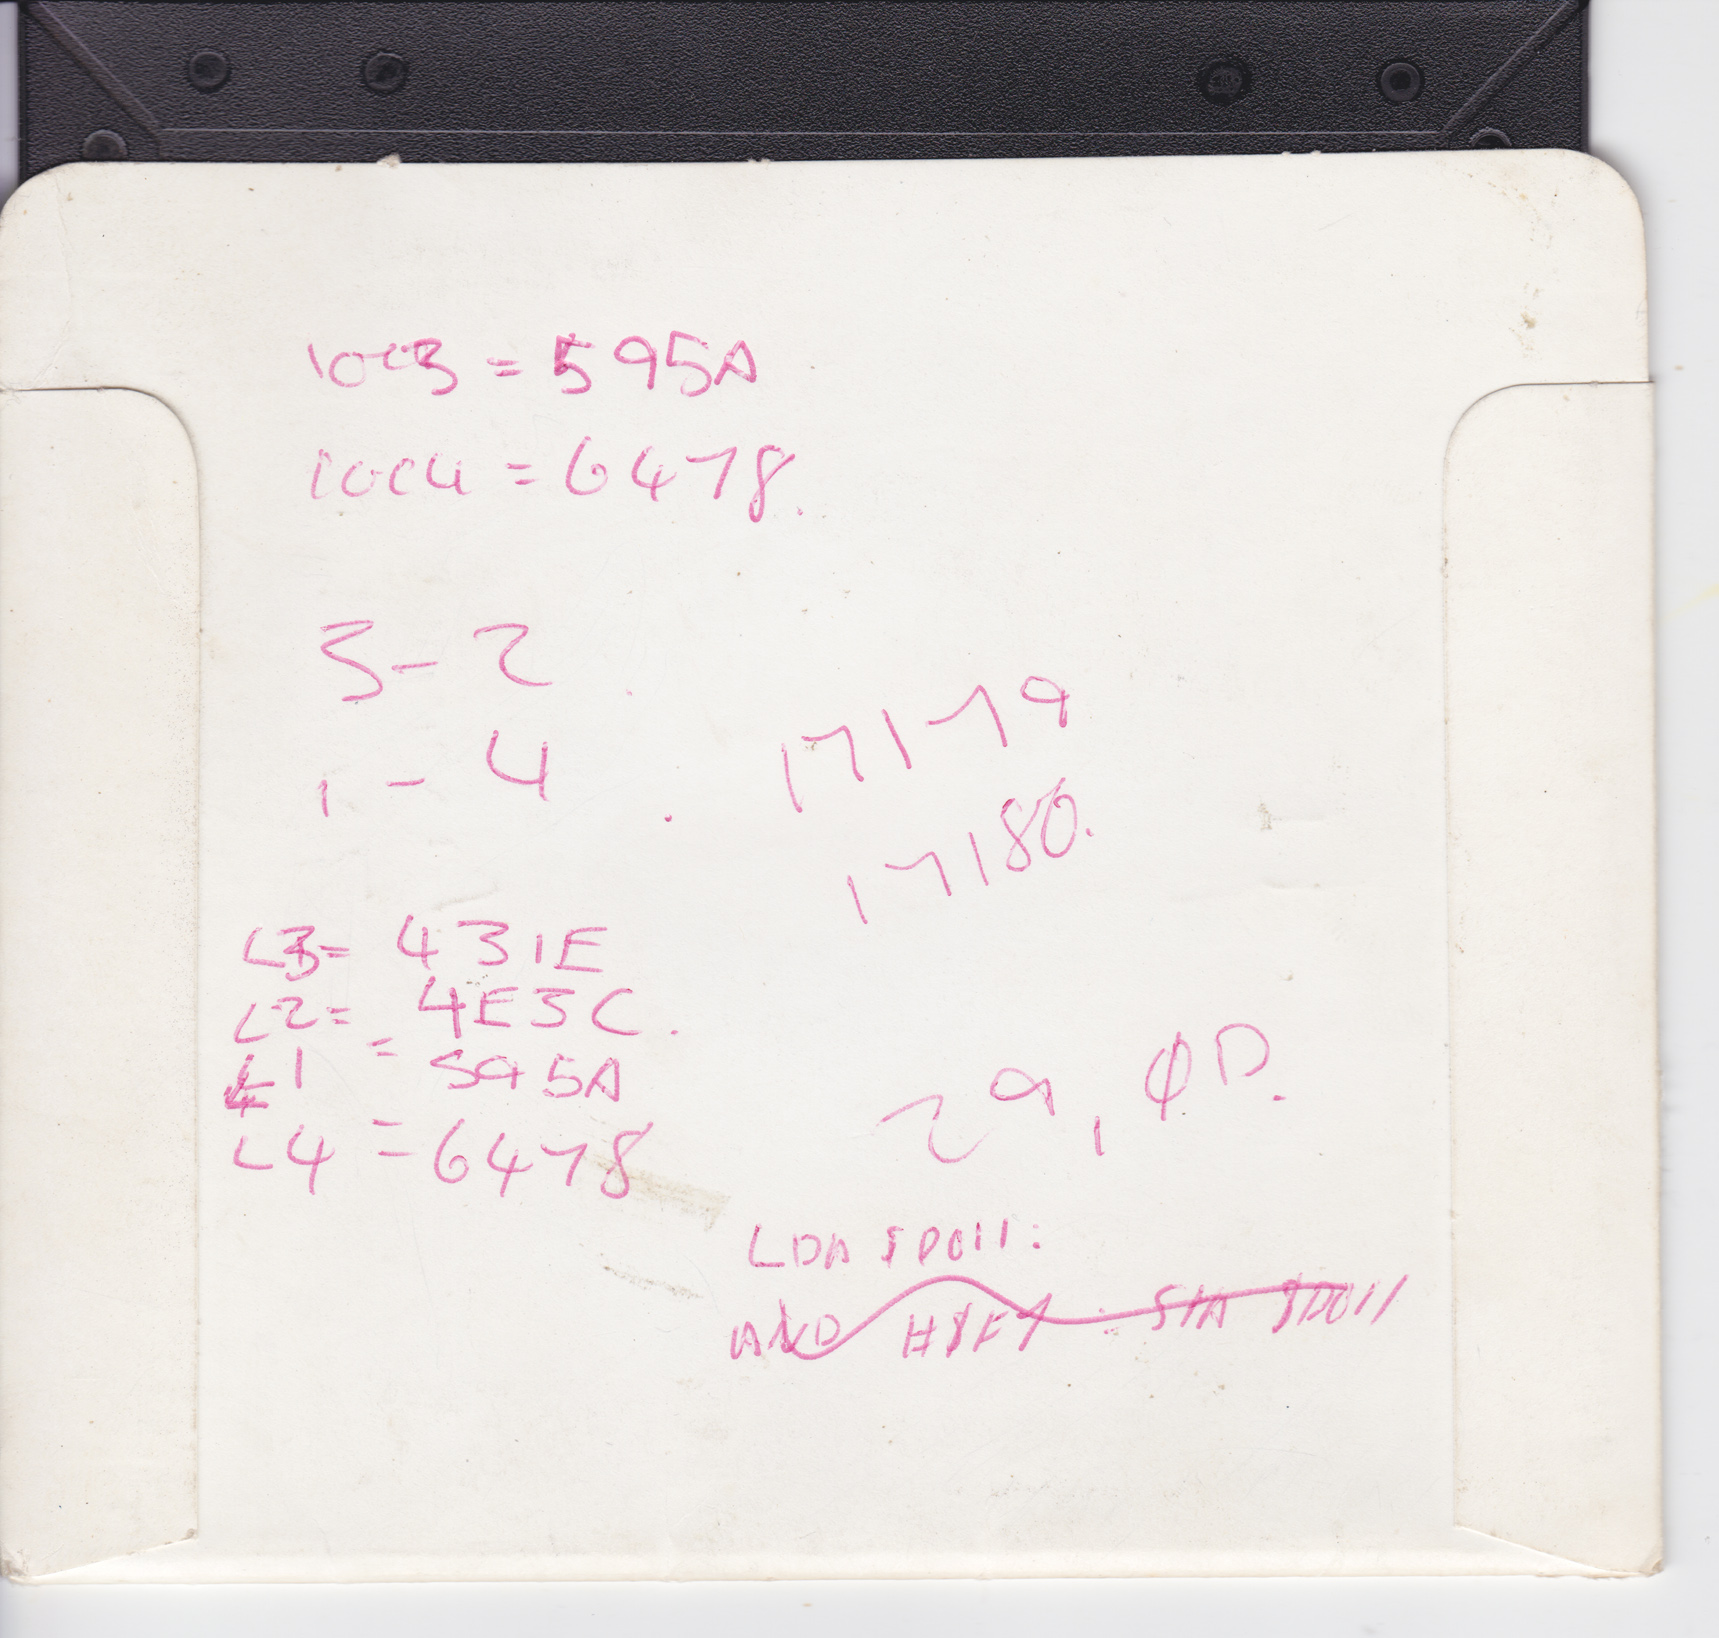 loc3 = 595A
loc4 = 6478.
3 - 2
1 - 4
17179
17180.
L3 = 431E
L2 = 4E3C.
L1 = 595A
L4 = 6478
29, 0D.
LDA $D011:
AND #$EF : STA $D011